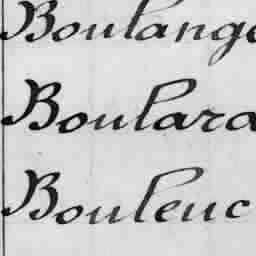 Boulange
Boulard
Bouleuc